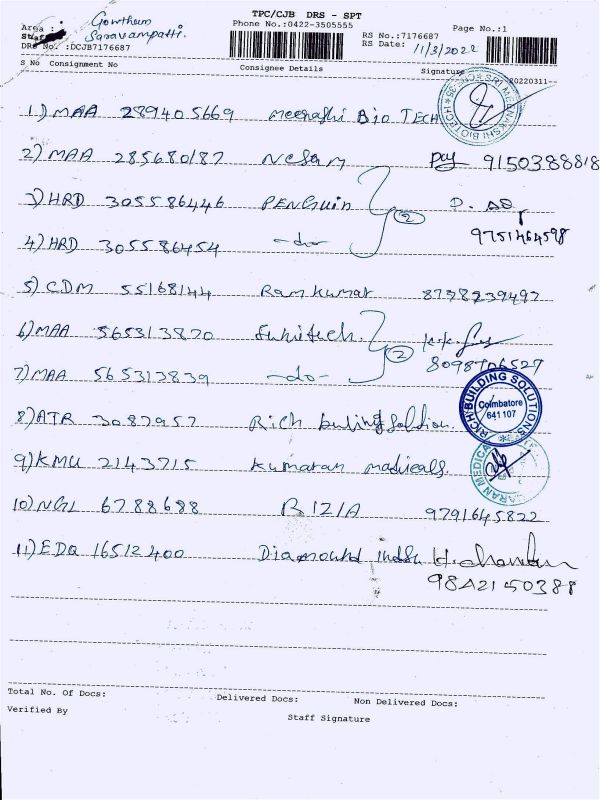 TPC/CJB DRS - SPT
Gowtham
Area : Saravampatti.
Phone No.:0422-3505555
Page No.:1
RS No.:7176687
Staff
DRS No. :DCJB7176687
RS Date: 11/3/2022
S No Consignment No Consignee Details Signature
20220311--
1) MAA 289405669 Meenathi Bio TECH
SRI MEENAKSHI BIOTECH
2) MAA 285680187 Nesam 9150388818
3) HRD 305586446 PENGUIN
2
9751464598
4) HRD 305586454 -do-
5) CDM 55168144 Ram kumar 8738239497
6) MAA 565313820 Sukitech.
2
8098706527
7) MAA 565313839 -do-
RICH BUILDING SOLUTIONS
Coimbatore
641 107
8) ATR 3087957 Rich buling Solution
9) KMU 2143715 Kumaran madicals.
10) NGL 6788688 RIZIA 9791645822
11) EDQ 16512400 Diamound India H. chandan
9842150388
Total No. Of Docs: Delivered Docs: Non Delivered Docs:
Verified By
Staff Signature